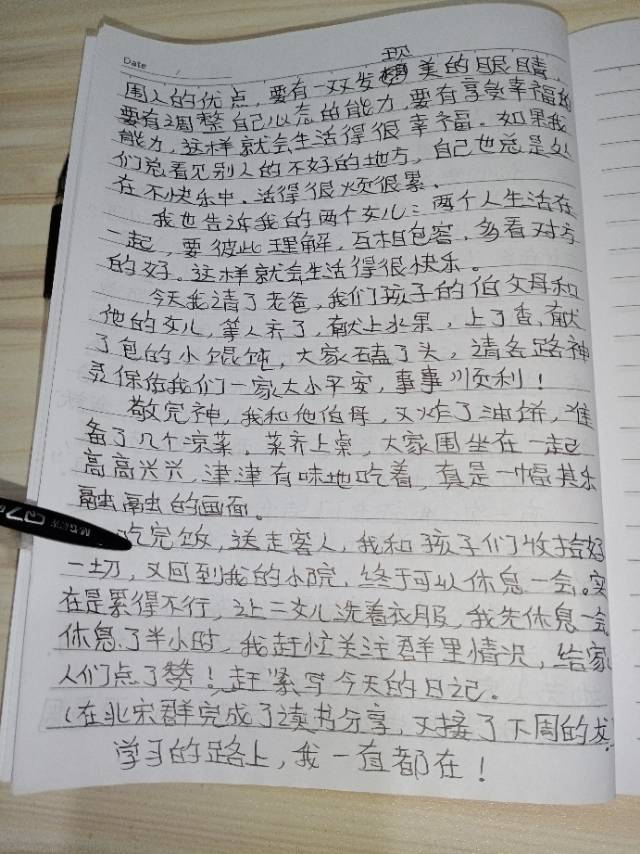 Date
现
围人的优点，要有一双发美的眼睛，
要有调整自己心态的能力，要有享受幸福的
能力，这样就会生活得很幸福。如果我
们总看见别人的不好的地方，自己也总是处
在不快乐中，活得很烦很累。
我也告诉我的两个女儿：两个人生活在
一起，要彼此理解，互相包容，多看对方
的好。这样就会生活得很快乐。
今天我请了老爸，我们孩子的伯父母和
他的女儿，等人齐了，献上水果，上了香、献
了包的小馄饨，大家磕了头，请各路神
灵保佑我们一家大小平安，事事顺利！
敬完神，我和他伯母，又炸了油饼，准
备了几个凉菜。菜齐上桌，大家围坐在一起
高高兴兴，津津有味地吃着，真是一幅其乐
融融的画面。
吃完饭，送走客人，我和孩子们收拾好
一切，又回到我的小院，终于可以休息一会。实
在是累得不行，让二女儿洗着衣服，我先休息一会
休息了半小时，我赶忙关注群里情况，给家
人们点了赞！赶紧写今天的日记。
（在北宋群完成了读书分享，又接了下周的
学习的路上，我一直都在！